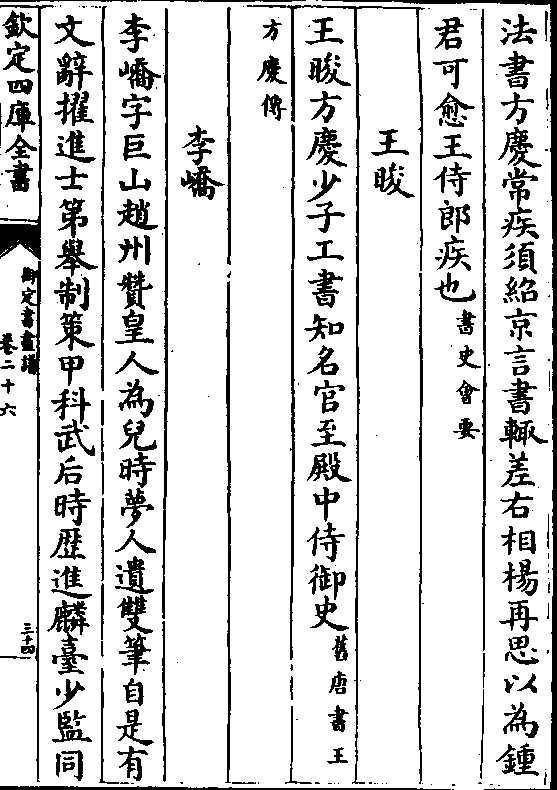 法書方慶常疾須紹京言書輙差右相楊再思以為鍾
君可愈王侍郎疾也書史會要
王晙
王晙方慶少子工書知名官至殿中侍御史舊唐書王
方慶傳
李嶠
李嶠字巨山趙州贊皇人為兒時夢人遺雙筆自是有
文辭擢進士第舉制策甲科武后時歷進麟臺少監同
欽定四庫全書
御定書畫譜
卷二十六
三十四